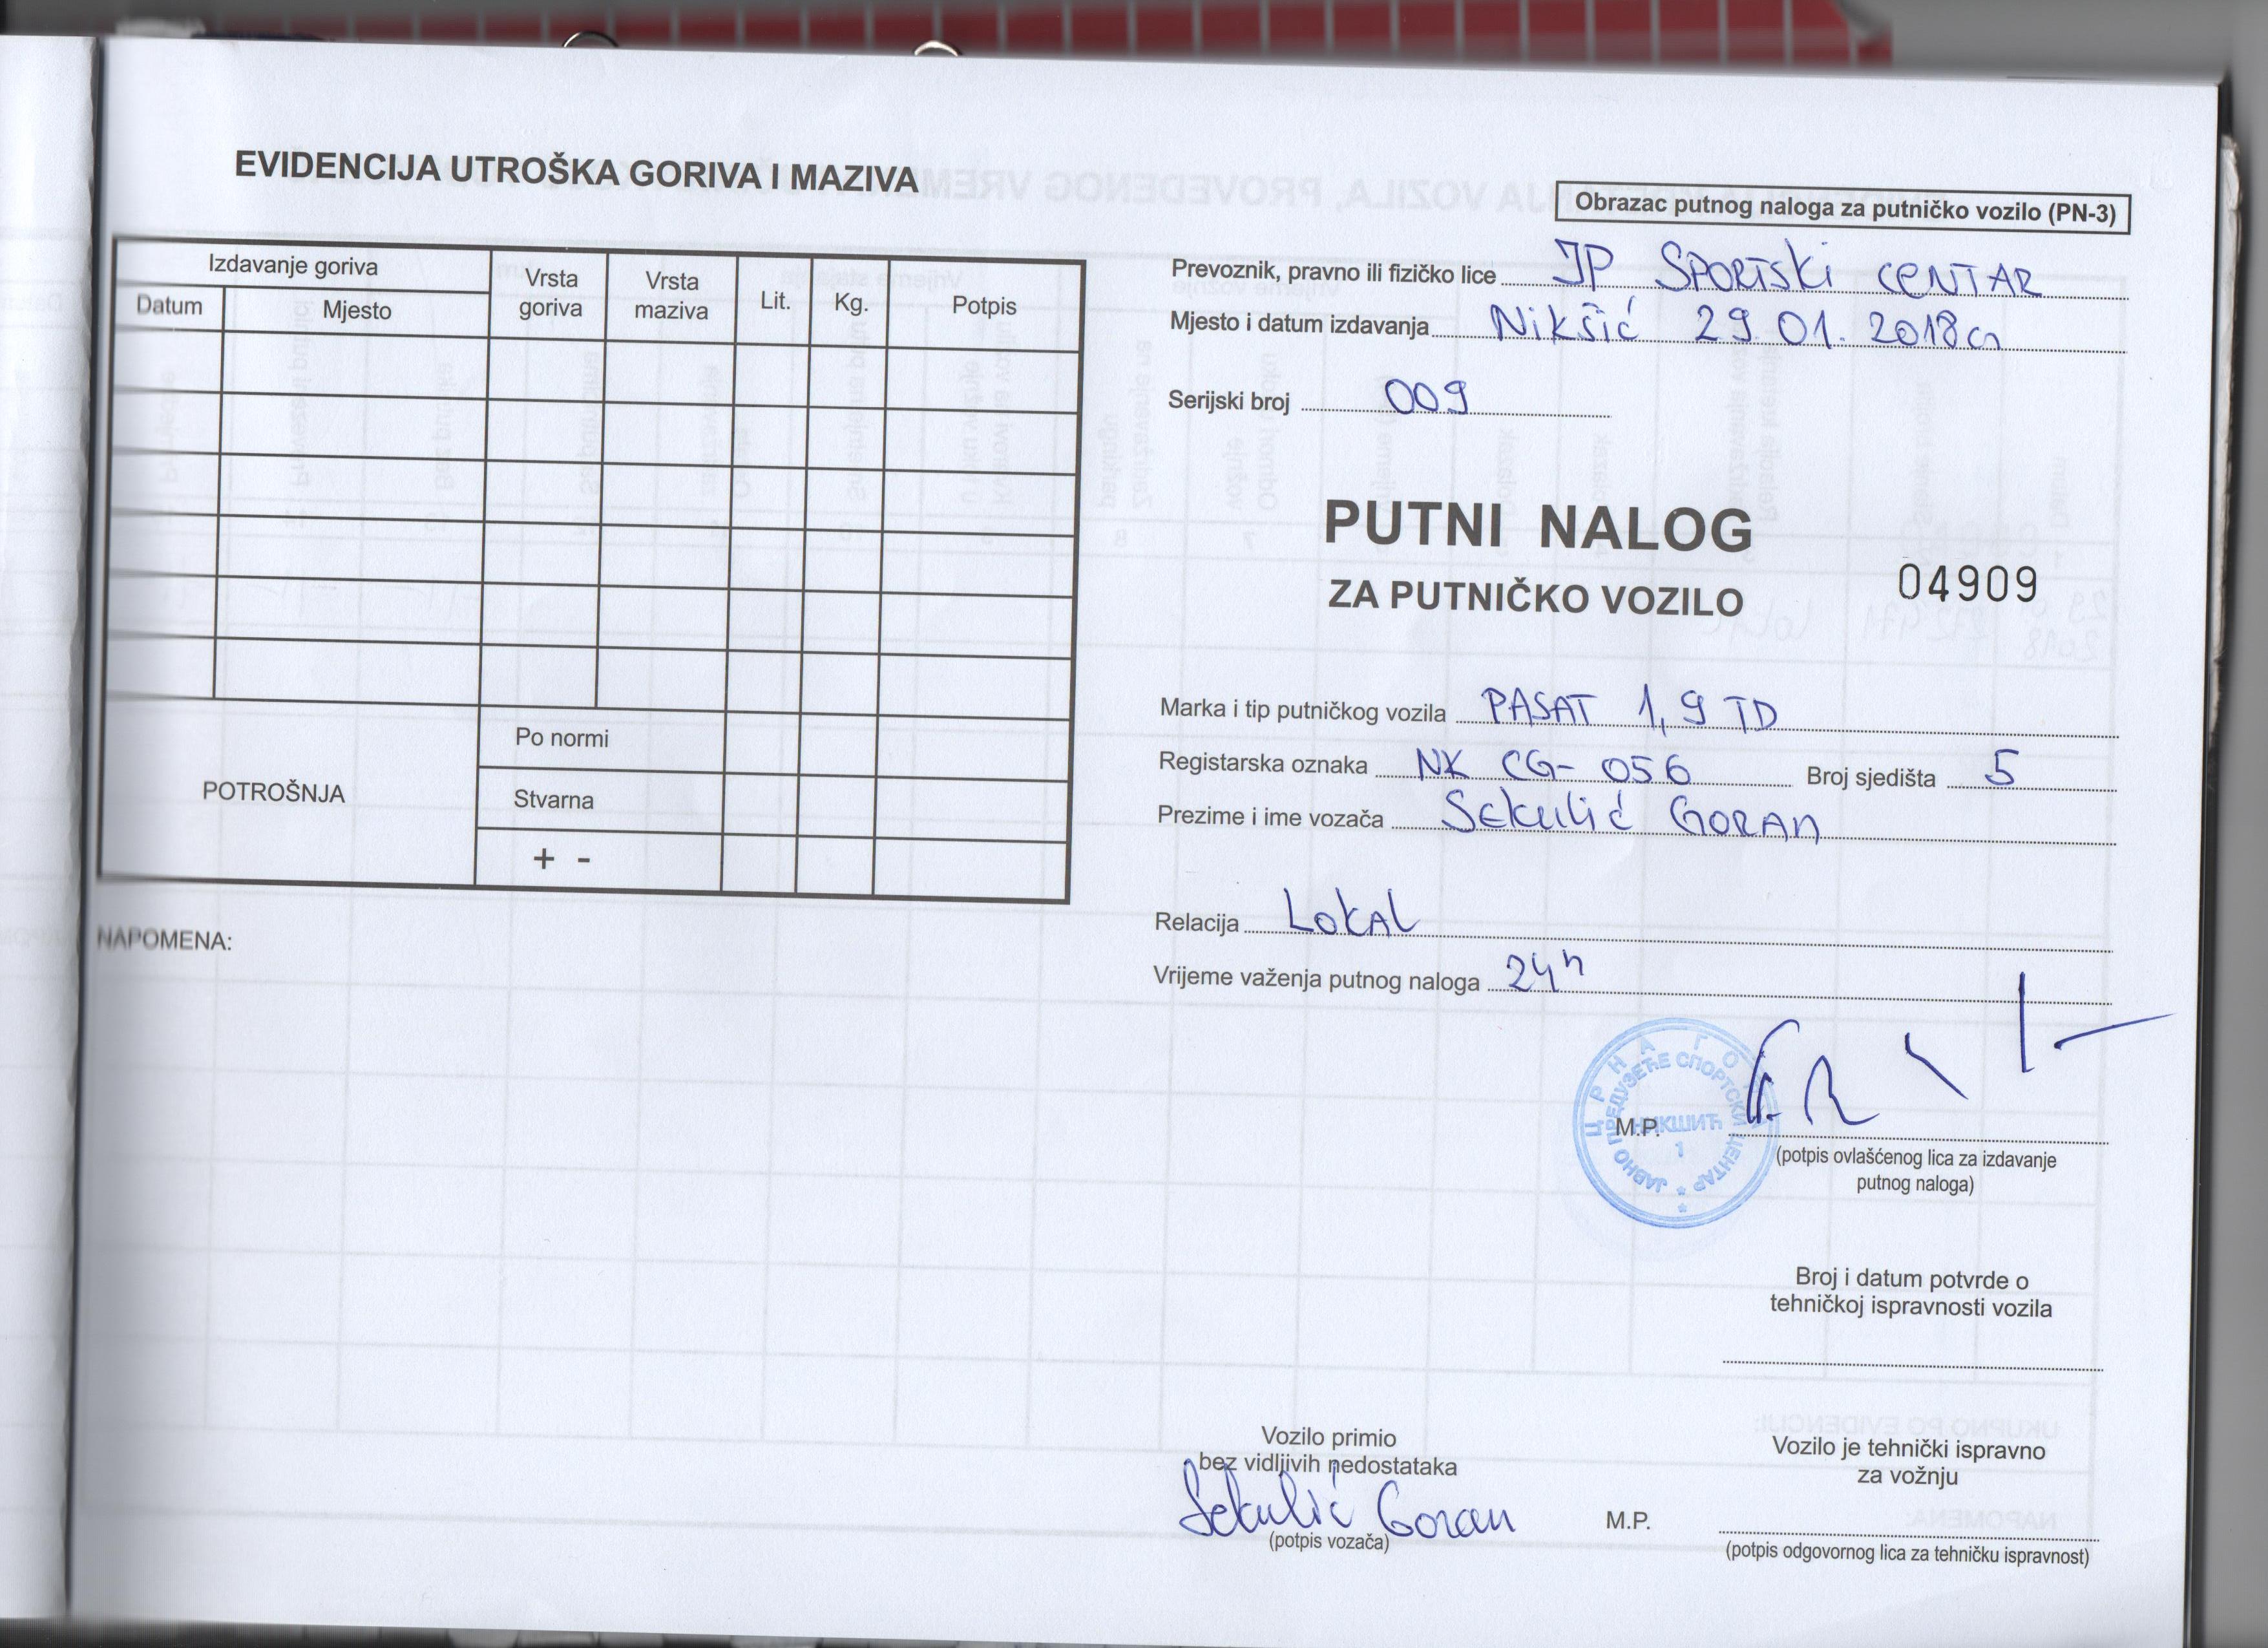 EVIDENCIJA UTROŠKA GORIVA I MAZIVA
Izdavanje goriva
Datum
Mjesto
Vrsta goriva
Vrsta maziva
Lit.
Kg.
Potpis
POTROŠNJA
Po normi
Stvarna
+ -
NAPOMENA:
Obrazac putnog naloga za putničko vozilo (PN-3)
Prevoznik, pravno ili fizičko lice JP SPORTSKI CENTAR
Mjesto i datum izdavanja Nikšić 29.01.2018
Serijski broj 009
PUTNI NALOG
ZA PUTNIČKO VOZILO
04909
Marka i tip putničkog vozila PASAT 1,9 TD
Registarska oznaka NK CG-056 Broj sjedišta 5
Prezime i ime vozača Sekulić GORAN
Relacija LOKAL
Vrijeme važenja putnog naloga 24h
ЦРНА ГОРА
ЈАВНО ПРЕДУЗЕЋЕ СПОРТСКИ ЦЕНТАР
НИКШИЋ
1
M.P.
(potpis ovlašćenog lica za izdavanje
putnog naloga)
Broj i datum potvrde o
tehničkoj ispravnosti vozila
Vozilo primio
bez vidljivih nedostataka
Sekulić Goran
(potpis vozača)
Vozilo je tehnički ispravno
za vožnju
M.P.
(potpis odgovornog lica za tehničku ispravnost)